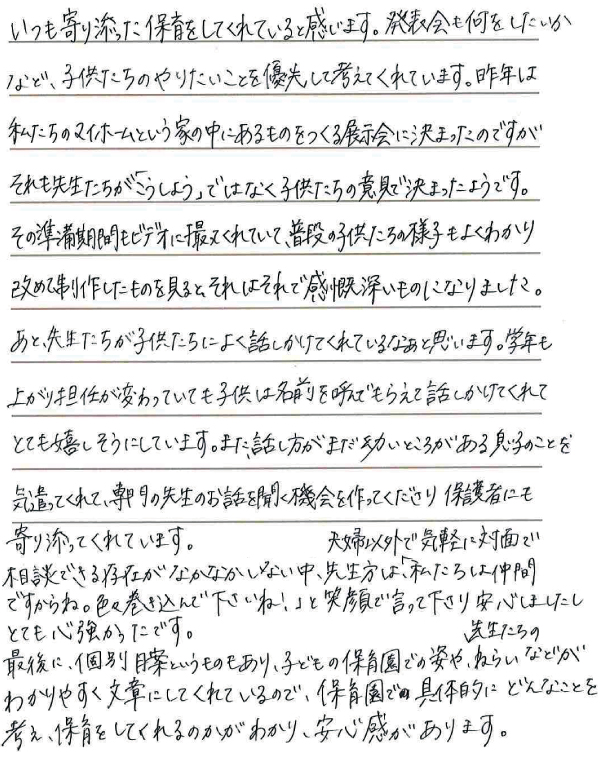 いつも寄り添った保育をしてくれていると感じます。発表会も何をしたいか
など、子供たちのやりたいことを優先して考えてくれています。昨年は
私たちのマイホームという家の中にあるものをつくる展示会に決まったのですが
それも先生たちが「こうしよう」ではなく子供たちの意見で決まったようです。
その準備期間もビデオに撮ってくれていて、普段の子供たちの様子もよくわかり
改めて制作したものを見ると、それはそれで感慨深いものになりました。
あと、先生たちが子供たちによく話しかけてくれているなぁと思います。学年も
上がり担任が変わっていても子供は名前を呼んでもらえて話しかけてくれて
とても嬉しそうにしています。また、話し方がまだ幼いところがある息子のことを
気遣ってくれて、専門の先生のお話を聞く機会を作ってくださり保護者にも
寄り添ってくれています。 夫婦以外で気軽に対面で
相談できる存在がなかなかいない中、先生方は、「私たちは仲間
ですからね。色々巻き込んで下さいね!」と笑顔で言って下さり安心しましたし
とても心強かったです。 先生たちの
最後に、個別目案というものもあり、子どもの保育園での姿や、ねらいなどが
わかりやすく文章にしてくれているので、保育園で具体的にどんなことを
考え、保育をしてくれるのかがわかり、安心感があります。